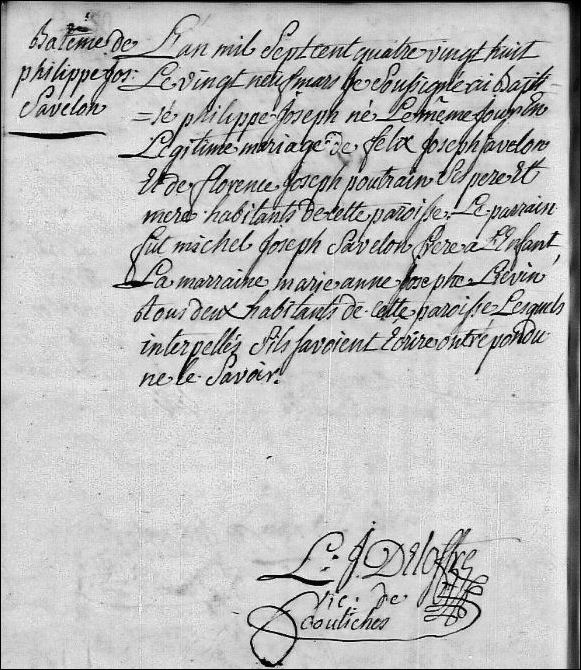 Batême de
philippe jos:
Savelon
L'an mil Sept cent quatre vingt huit
Le vingt neuf mars je Soubsigné ai Bapti
=sé philippe joseph né Le même jour En
Legitime mariage de felix joseph savelon
Et de florence joseph poutrain Ses pere Et
mere habitants de cette paroisse. Le parrain
fut michel joseph Savelon frere a L'Enfant,
La marraine marie anne josephe Crévin
tous deux habitants de cette paroisse Lesquels
interpellés s'ils savoient Ecrire ont répondu
ne le Savoir.
L. j. Deloffre
vic: de
Coutiches